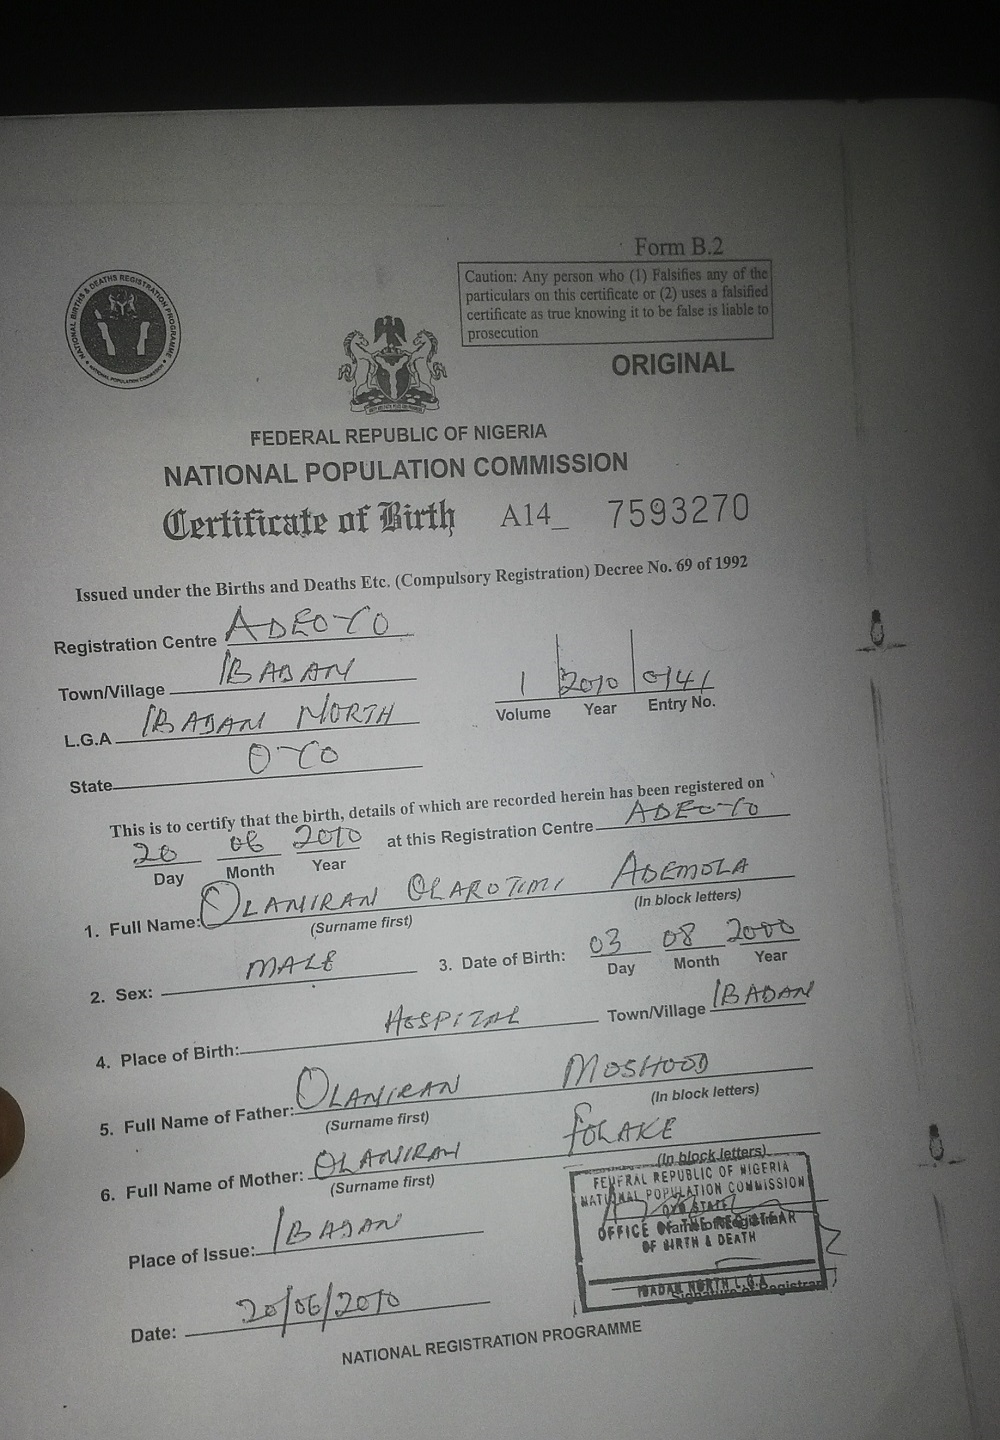 Form B.2
Caution: Any person who (1) Falsifies any of the
particulars on this certificate or (2) uses a falsified
certificate as true knowing it to be false is liable to
prosecution
NATIONAL BIRTHS & DEATHS REGISTRATION PROGRAMME
NATIONAL POPULATION COMMISSION
ORIGINAL
FEDERAL REPUBLIC OF NIGERIA
NATIONAL POPULATION COMMISSION
Certificate of Birth A14_ 7593270
Issued under the Births and Deaths Etc. (Compulsory Registration) Decree No. 69 of 1992
Registration Centre ADEOYO
Town/Village IBADAN
L.G.A IBADAN NORTH
State OYO
1 2010 0141
Volume Year Entry No.
This is to certify that the birth, details of which are recorded herein has been registered on
20 06 2010 at this Registration Centre ADEOYO
Day Month Year
1. Full Name: OLANIRAN OLAROTIMI ADEMOLA
(Surname first) (In block letters)
2. Sex: MALE 3. Date of Birth: 03 08 2000
Day Month Year
4. Place of Birth: HOSPITAL Town/Village IBADAN
5. Full Name of Father: OLANIRAN MOSHOOD
(Surname first) (In block letters)
6. Full Name of Mother: OLANIRAN FOLAKE
(Surname first) (In block letters)
FEDERAL REPUBLIC OF NIGERIA
NATIONAL POPULATION COMMISSION
OYO STATE
OFFICE OF THE REGISTRAR
Name of Registrar
OF BIRTH & DEATH
IBADAN NORTH L.G.A
Signature of Registrar
Place of Issue: IBADAN
Date: 20/06/2010
NATIONAL REGISTRATION PROGRAMME